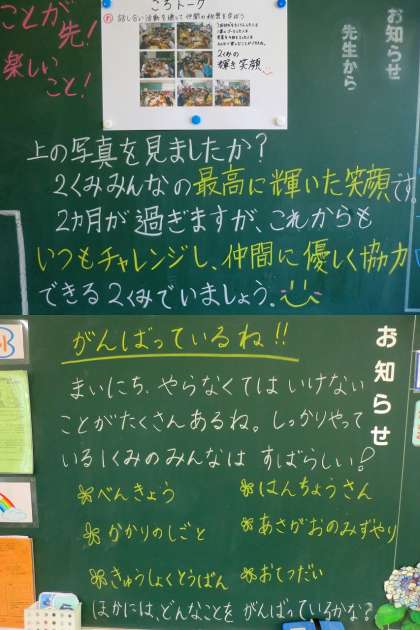 ことが
先！
楽しい
こと！
ころトーク
話し合い活動を通して仲間の秘密を学ぼう
2くみの
輝き笑顔
お知らせ
先生から
上の写真を見ましたか？
2くみみんなの最高に輝いた笑顔です。
2カ月が過ぎますが、これからも
いつもチャレンジし、仲間に優しく協力
できる2くみでいましょう。
がんばっているね!!
お知らせ
まいにち、やらなくてはいけない
ことがたくさんあるね。しっかりやって
いる1くみのみんなは すばらしい！
べんきょう
はんちょうさん
かかりのしごと
あさがおのみずやり
きゅうしょくとうばん
おてつだい
ほかには、どんなことを がんばっているかな？